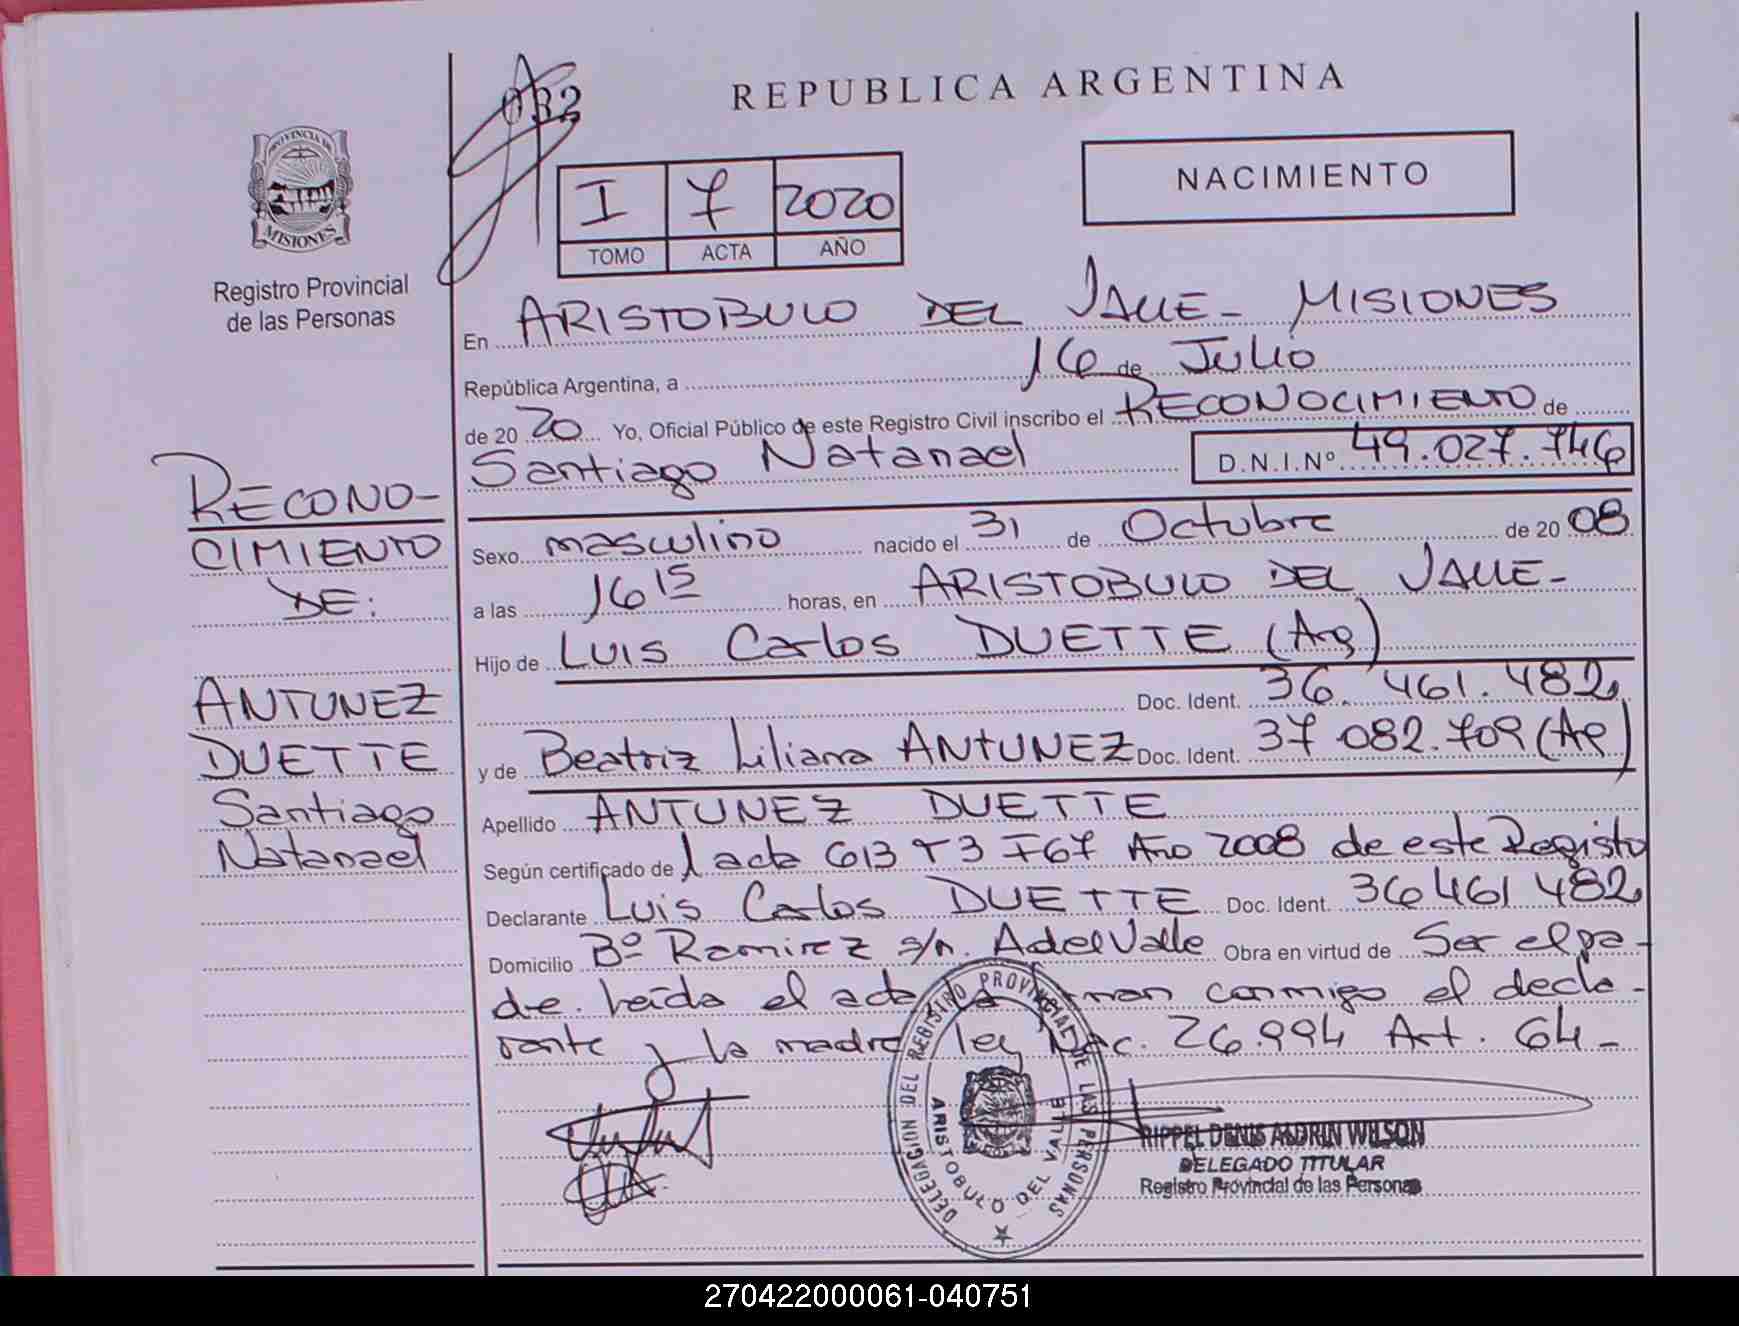 032
REPUBLICA ARGENTINA
NACIMIENTO
I 7 2020
TOMO ACTA AÑO
PROVINCIA DE
MISIONES
Registro Provincial
de las Personas
En ARISTOBULO DEL VALLE - MISIONES
República Argentina, a 16 de Julio
de 20 20 Yo, Oficial Público de este Registro Civil inscribo el RECONOCIMIENTO de
Santiago Natanael D.N.I.Nº 49.027.746
Sexo masculino nacido el 31 de Octubre de 20 08
a las 16 15 horas, en ARISTOBULO DEL VALLE -
Hijo de Luis Carlos DUETTE (Arg)
Doc. Ident. 36.461.482
y de Beatriz Liliana ANTUNEZ Doc. Ident. 37 082.709 (Ar)
Apellido ANTUNEZ DUETTE
Según certificado de acta 613 T3 F67 Año 2008 de este Registo
Declarante Luis Carlos DUETTE Doc. Ident. 36 461 482
Domicilio Bº Ramirez s/n. A del Valle Obra en virtud de Ser el pa-
dre. Leída el acta la firman conmigo el decla-
rante y la madre ley Nac. 26.994 Art. 64 -
RECONO-
CIMIENTO
DE:
ANTUNEZ
DUETTE
Santiago
Natanael
DELEGACION DEL REGISTRO PROVINCIAL DE LAS PERSONAS
ARISTOBULO DEL VALLE
RIPPEL DENIS ADRIN WILSON
DELEGADO TITULAR
Registro Provincial de las Personas
270422000061-040751